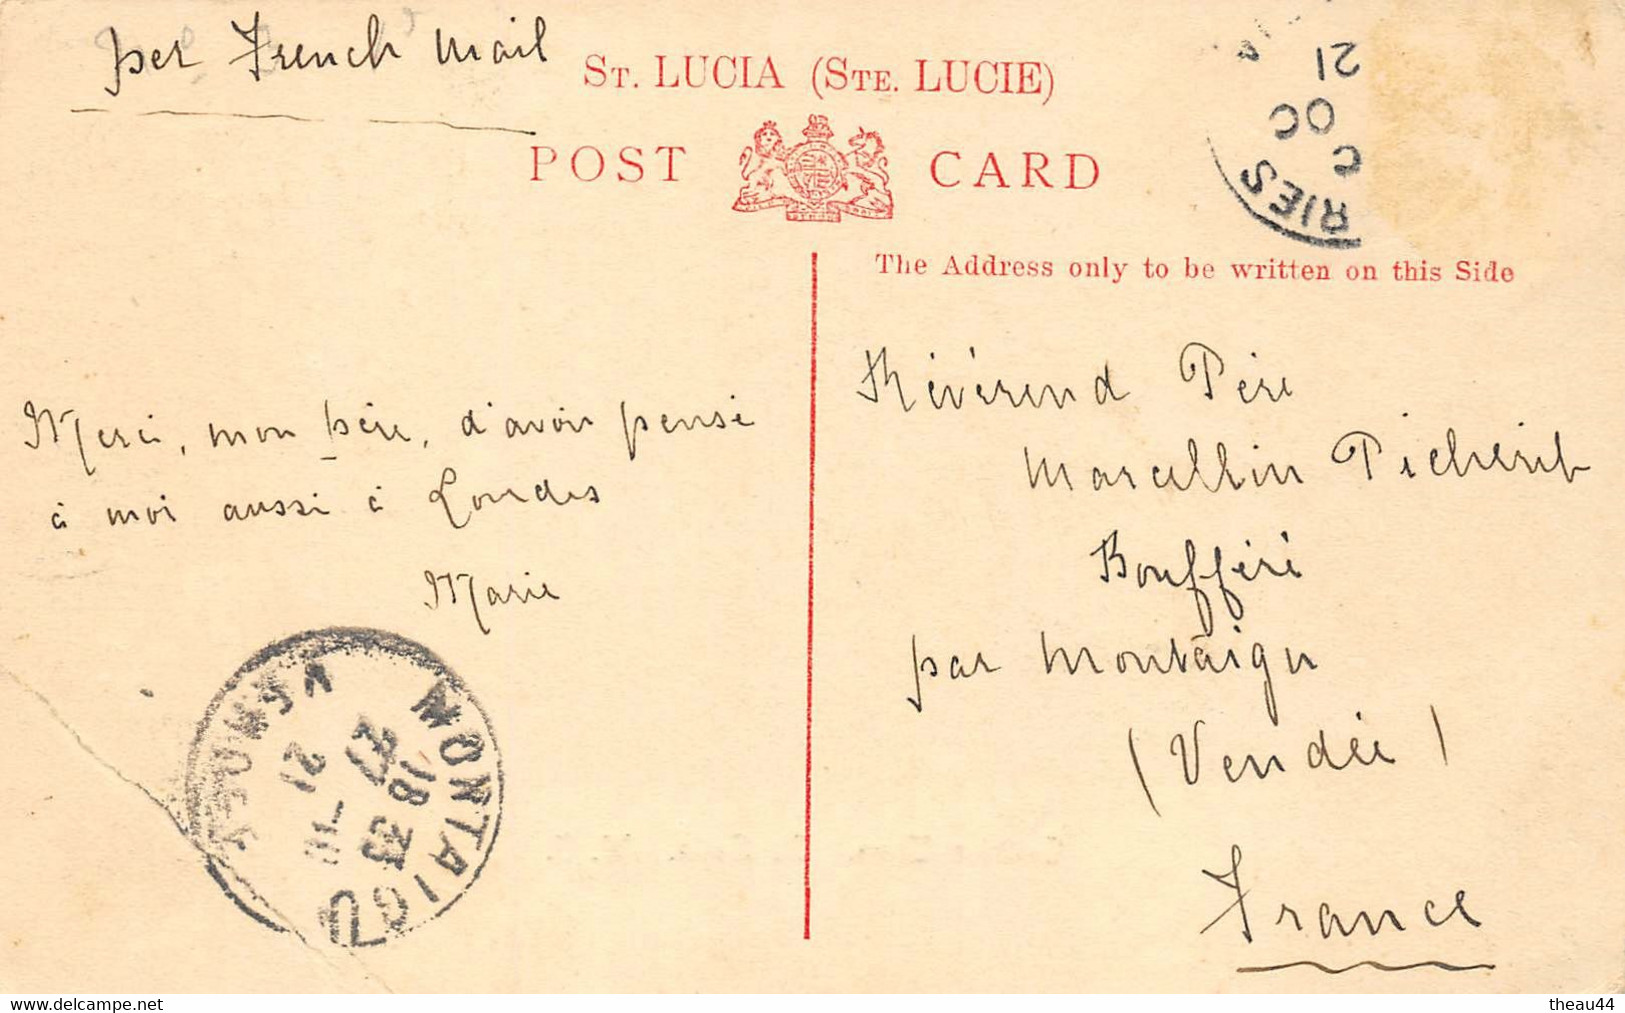 per French Mail
ST. LUCIA (STE. LUCIE)
POST CARD
The Address only to be written on this Side
RIES
C
OC
21
Merci, mon père, d'avoir pensé
à moi aussi à Lourdes
Marie
Révérend Père
Marcellin Picherit
Boufféré
par Montaigu
(Vendée)
France
MONTAIGU
VENDÉE
18 35
27
21
delcampe.net
theau44